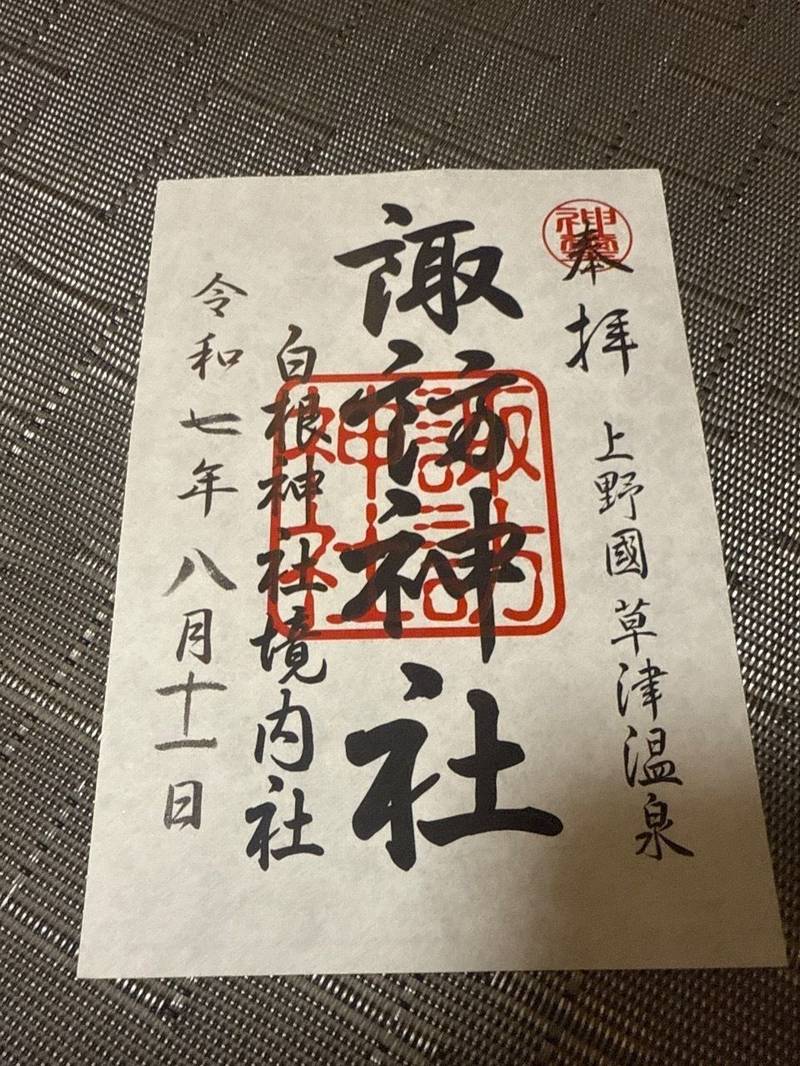 奉拝
上野國草津温泉
諏訪神社
諏訪
神社
白根神社境内社
令和七年八月十一日